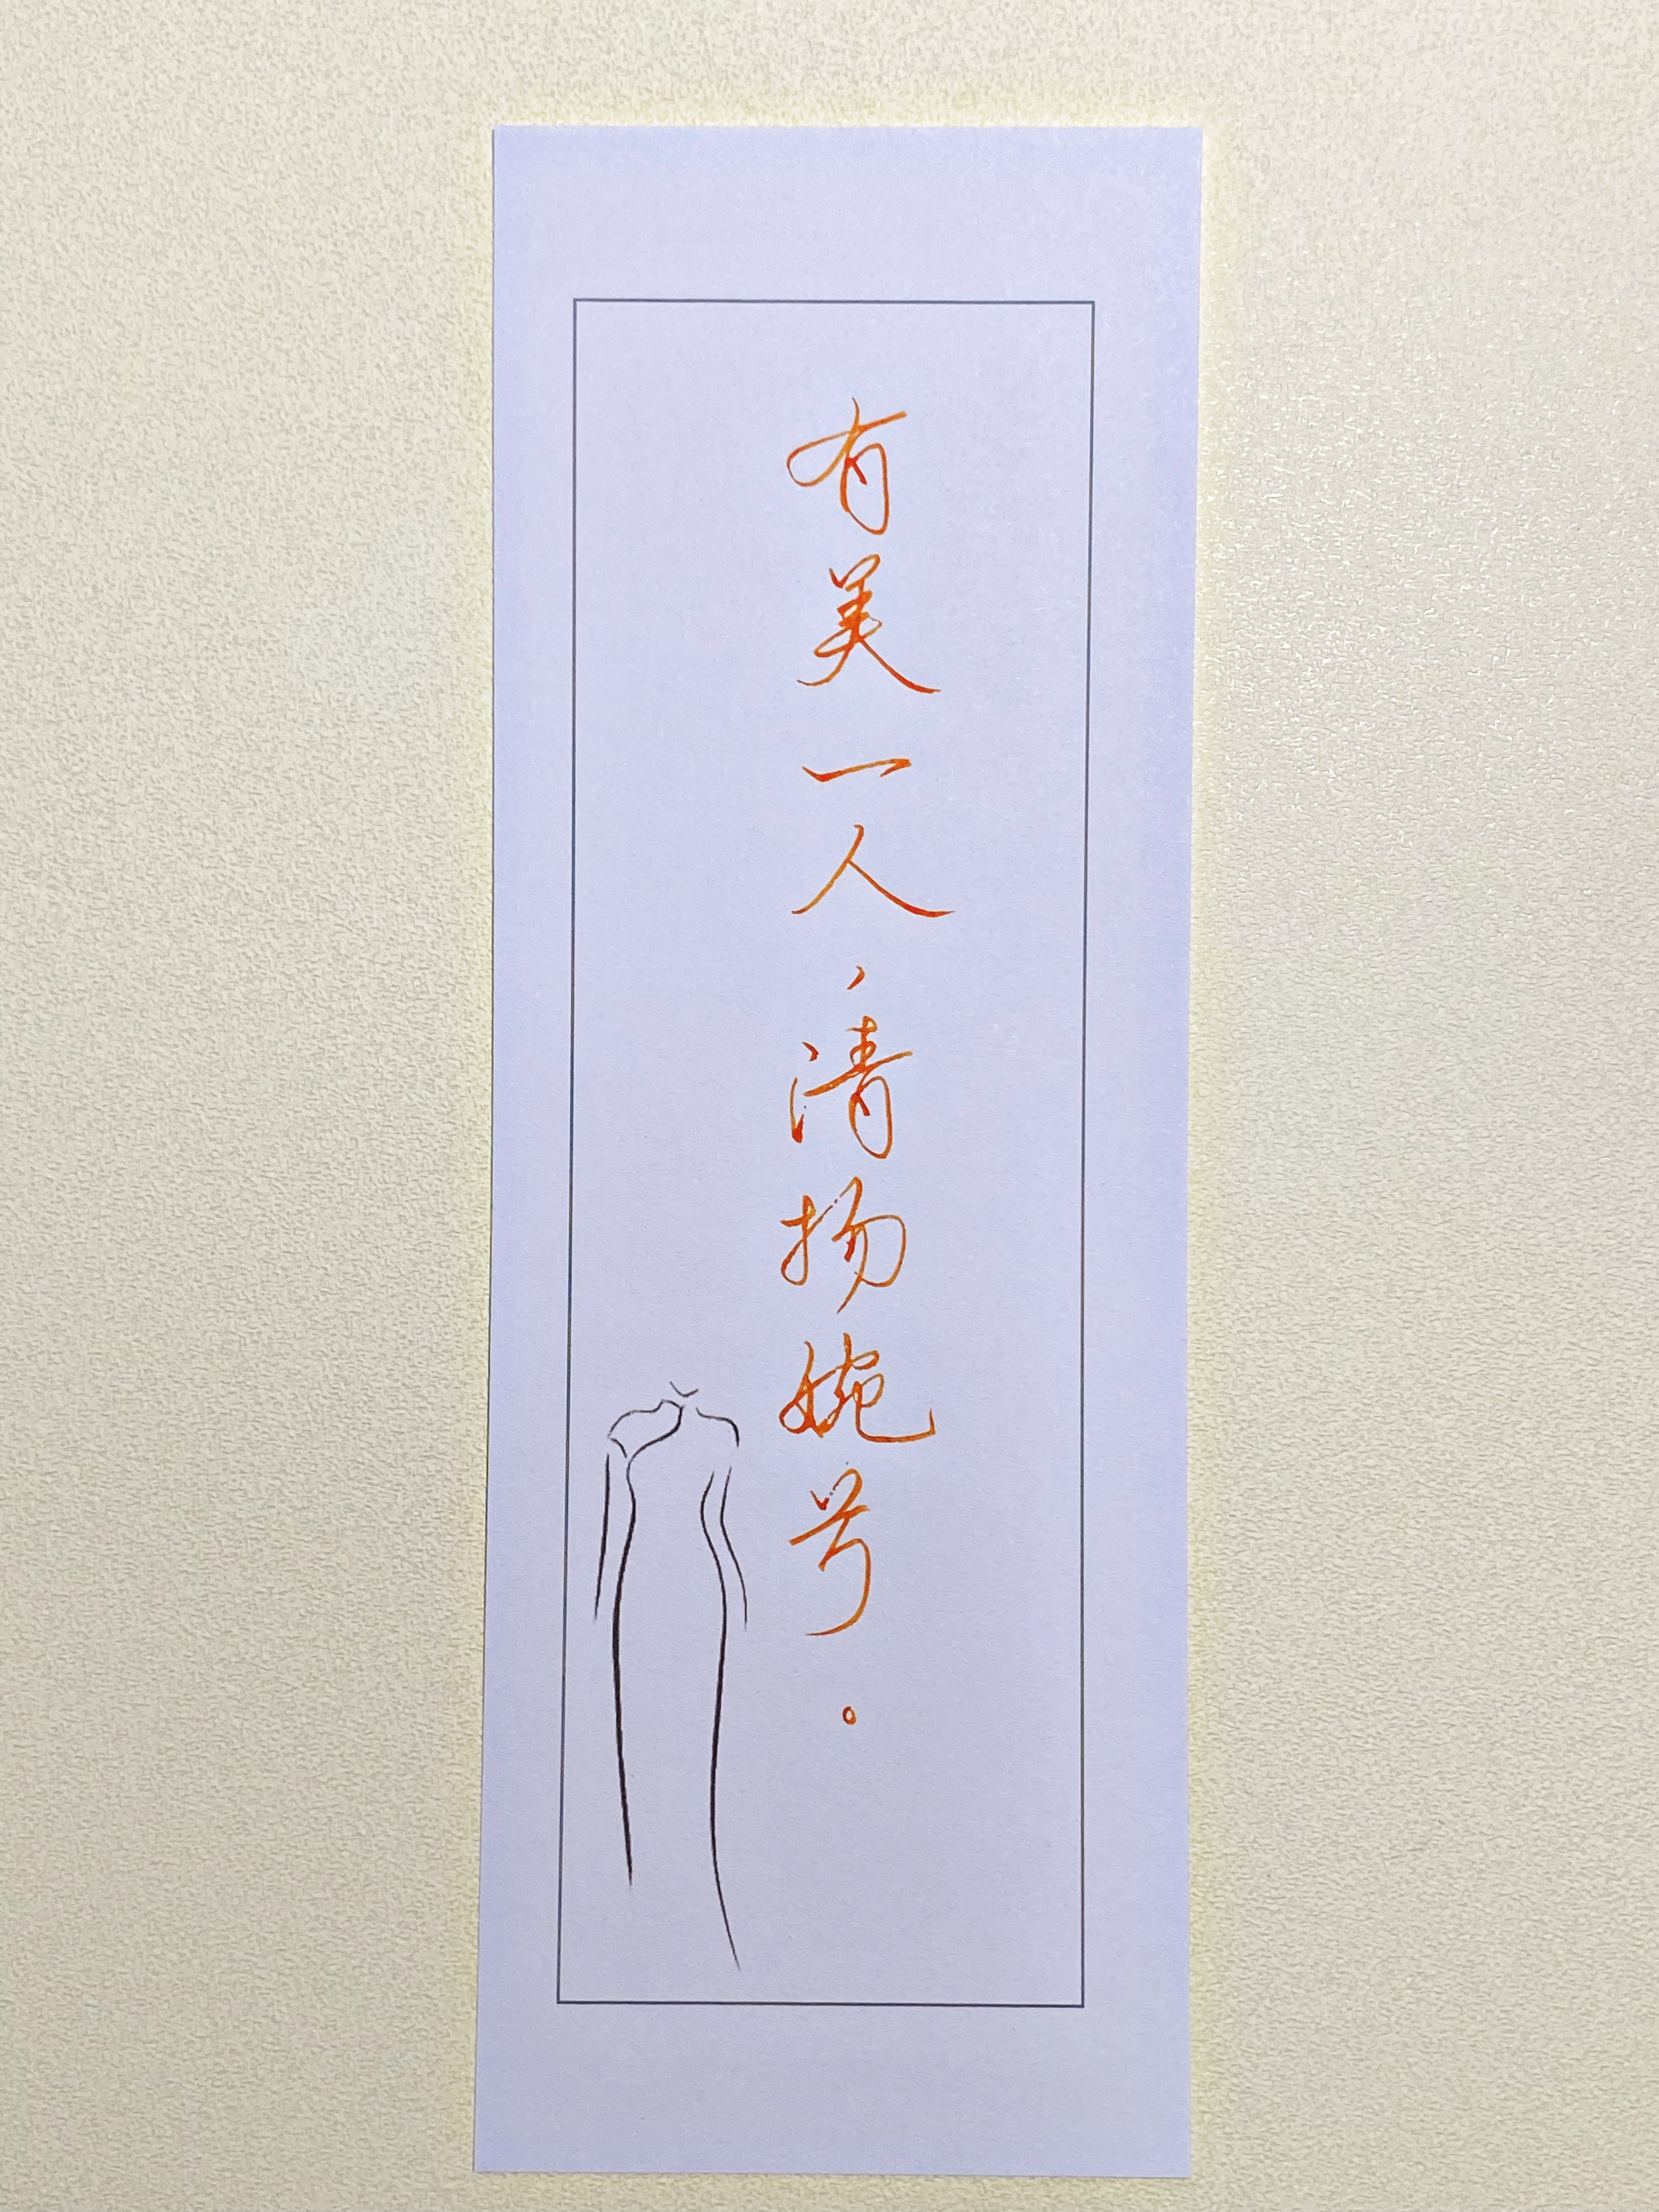 有美一人，清扬婉兮。